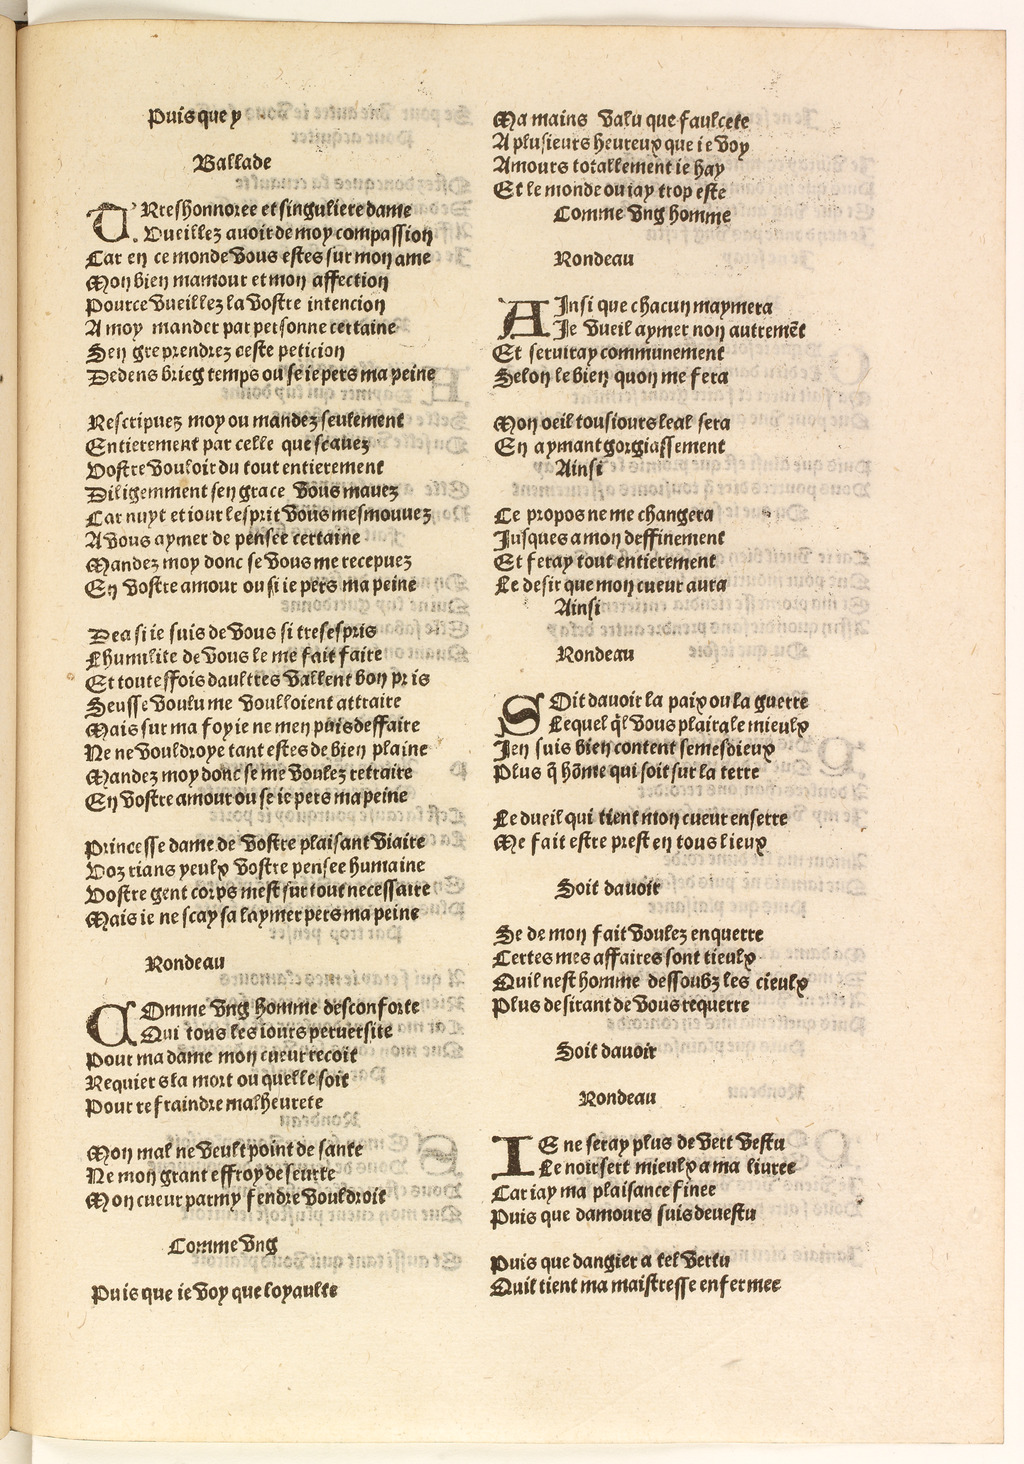 Puis que y
Ballade
TRreshonnoree et singuliere dame
Vueillez auoir de moy compassion
Car en ce monde vous estes sur mon ame
Mon bien mamour et mon affection
Pource vueillez la vostre intencion
A moy mander par personne certaine
Sen gre prendrez ceste peticion
Dedens brieg temps ou se ie pers ma peine
Rescripuez moy ou mandez seulement
Entierement par celle que scauez
Vostre vouloir du tout entierement
Diligemment sen grace vous mauez
Car nuyt et iour lesprit vous mesmouuez
A vous aymer de pensee certaine
Mandez moy donc se vous me recepuez
En vostre amour ou si ie pers ma peine
Dea si ie suis de vous si tresespris
Lhumilite de vous le me fait faire
Et touteffois daultres vallent bon pris
Seusse voulu me voulloient attraire
Mais sur ma foy ie ne men puis deffaire
Ne ne vouldroye tant estes de bien plaine
Mandez moy donc se me voulez retraire
En vostre amour ou se ie pers ma peine
Princesse dame de vostre plaisant viaire
Voz rians yeulx vostre pensee humaine
Vostre gent corps mest sur tout necessaire
Mais ie ne scay sa laymer pers ma peine
Rondeau
COmme vng homme desconforte
Qui tous les iours peruersite
Pour ma dame mon cueur recoit
Requiers la mort ou quelle soit
Pour refraindre malheurete
Mon mal ne veult point de sante
Ne mon grant effroy de seurte
Mon cueur parmy fendre vouldroit
Comme vng
Puis que ie voy que loyaulte
Ma mains valu que faulcete
A plusieurs heureux que ie voy
Amours totallement ie hay
Et le monde ou iay trop este
Comme vng homme
Rondeau
AInsi que chacun maymera
Je vueil aymer non autremēt
Et seruiray communement
Selon le bien quon me fera
Mon oeil tousiours leal sera
En aymant gorgiassement
Ainsi
Ce propos ne me changera
Jusques a mon deffinement
Et feray tout entierement
Le desir que mon cueur aura
Ainsi
Rondeau
SOit dauoir la paix ou la guerre
Lequel ql vous plaira le mieulx
Jen suis bien content semesdieux
Plus q̄ hōme qui soit sur la terre
Le dueil qui tient mon cueur enserre
Me fait estre prest en tous lieux
Soit dauoir
Se de mon fait voulez enquerre
Certes mes affaires sont tieulx
Quil nest homme dessoubz les cieulx
Plus desirant de vous requerre
Soit dauoir
Rondeau
IE ne seray plus de vert vestu
Le noir sert mieulx a ma liuree
Car iay ma plaisance finee
Puis que damours suis deuestu
Puis que dangier a tel vertu
Quil tient ma maistresse enfermee